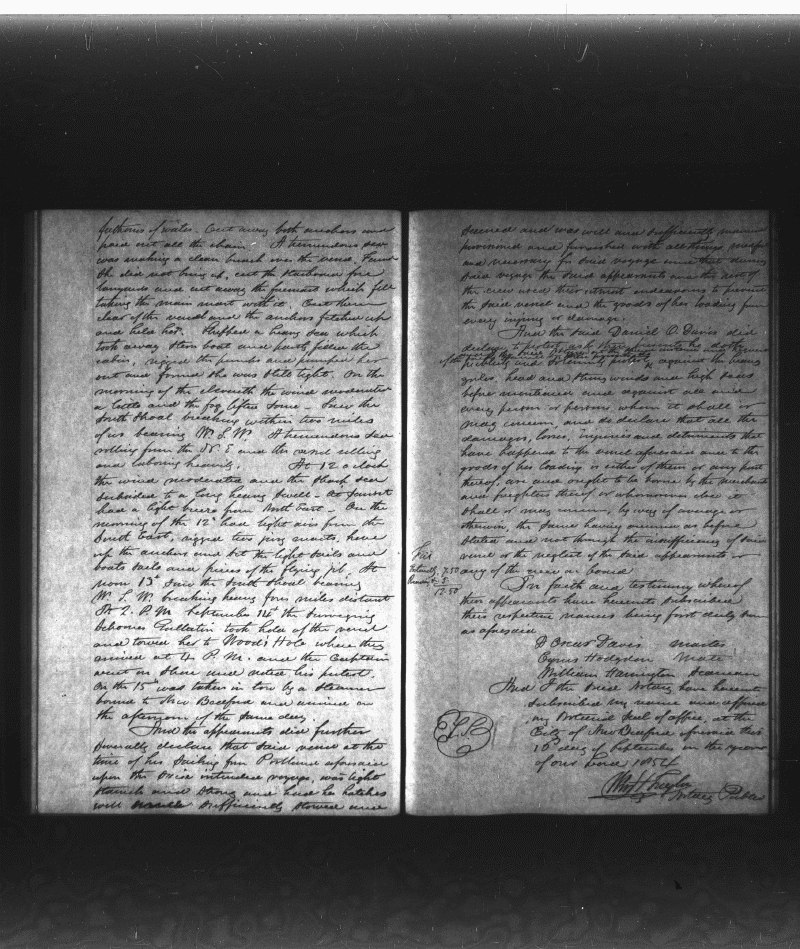 fathoms of water. Cut away both anchors and
paid out all the chain. A tremendous sea
was making a clean breach over the vessel. Found
she did not bring up, cut the starboard fore
lanyards and cut away the foremast which fell
taking the main mast with it. Cut them
clear of the vessel and the anchors fetched up
and held her. Shipped a heavy sea which
took away stern boat and partly filled the
cabin, rigged the pumps and pumped her
out and found she was still tight. On the
morning of the eleventh the wind moderated
a little and the fog lifted some. Saw the
South Shoal breaking within two miles
of us bearing W. S. W. A tremendous sea
rolling from the and the vessel rolling
and laboring heavily. At 12 o'clock
the wind moderated and the sharp sea
subsided to a long heavy swell. At sunset
had a light breeze from East. On the
morning of the 12th had light airs from the
South East, rigged two jury masts, hove
up the anchors and set the light sails and
boats sails and pieces of the flying jib. At
noon 13th saw the South Shoal bearing
W. S. W. breaking heavy four miles distant
At 2. P.M. September 14th the Surveying
Schooner Gallatin took hold of the vessel
and towed her to Wood's Hole where they
arrived at 4 P.M. and the Captain
went on shore and noted his protest.
On the 15th was taken in tow by a steamer
bound to New Bedford and arrived in
the afternoon of the same day
And the appearants did further
severally declare that said vessel at the
time of her sailing from Portland aforesaid
upon the said intended voyage, was tight
staunch and strong and had her hatches
well sufficiently stowed and
secured and was well and sufficiently manned
provisioned and furnished with all things
and necessary for said voyage and that during
said voyage the said appearants and the rest of
the crew used their utmost endeavors to preserve
the said vessel and the goods of her loading from
every injury or damage.
And the said Daniel O. Davis did
declare to protest, as by these presents he doth
publicly and solemnly protest against the heavy
gales, head and strong winds and high seas
before mentioned and against all and
every person or persons whom it shall or
may concern, and do declare that all the
damages, losses, injuries and detriments that
have happened to the vessel aforesaid and to the
goods of her loading, or either of them or any part
thereof, are and ought to be borne by the merchants
and freighters thereof or whomsoever else it
shall or may concern, by way of average or
otherwise, the same having occurred as before
stated and not through the insufficiency of said
vessel or the neglect of the said appearants or
any of the crew on board
In faith and testimony whereof
these appearants have hereunto subscribed
their respective names being first duly sworn
as aforesaid
D Oscar Davis Master
Cyrus Hodgdon Mate
William Harrington Seaman
And I the said Notary have hereunto
subscribed my name and affixed
my Notarial Seal of office, at the
City of New Bedford aforesaid this
day of September in the year
of our Lord 1854
Taylor
Notary Public
Fees
7.50
5
12.50